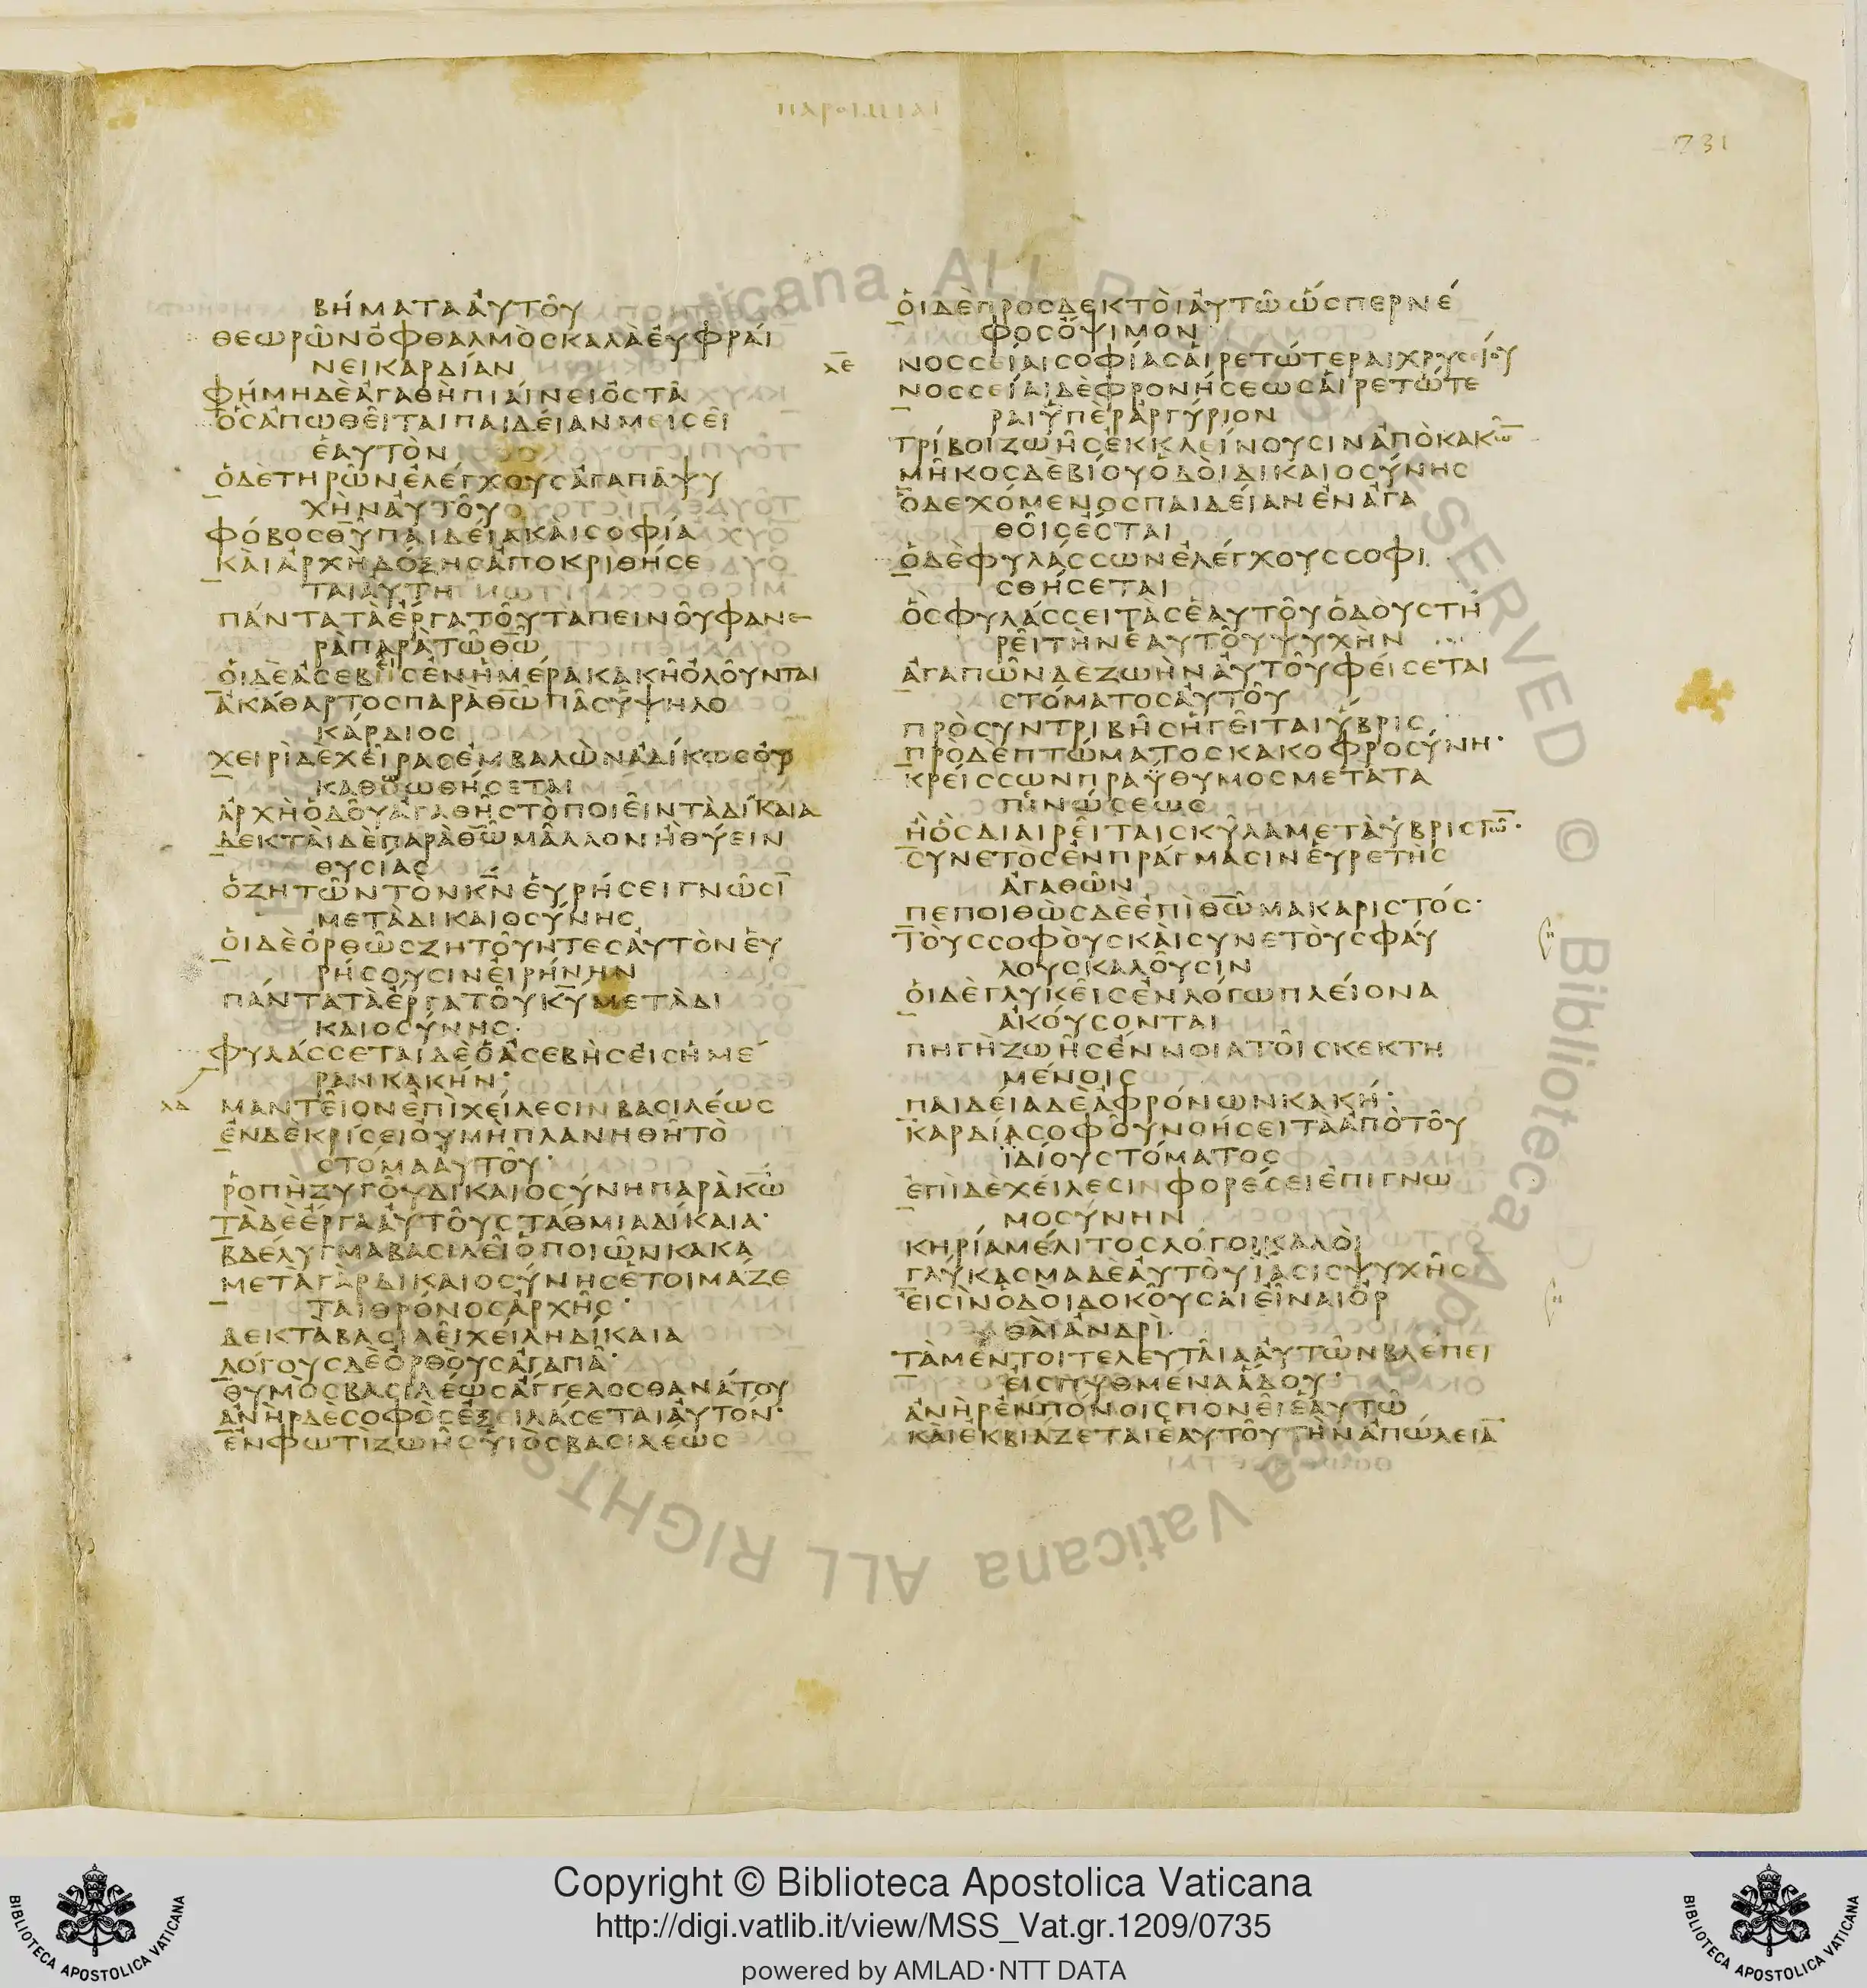 ΠΑΡΟΙΜΙΑΙ
731
βήματα ἀυτοῦ
θεωρῶν ὀφθαλμὸς καλὰ ἐυφράι
νει καρδίαν
φήμη δὲ ἀγαθὴ πιάινει ὀστᾶ
ὃς ἀπωθεῖται παιδείαν μεισεῖ
ἑαυτὸν
ὁ δὲ τηρῶν ἐλέγχους ἀγαπᾶ ψυ
χὴν ἀυτοῦ
φόβος θ̅υ̅ παιδεία κὰι σοφία
κὰι ἀρχὴ δόξης ἀποκριθήσε
ται ἀυτῆ
πάντα τὰ ἔργα τοῦ ταπεινοῦ φανε
ρὰ παρὰ τῶ θ̅ω̅
ὁι δὲ ἀσεβεῖς ἐν ἡμέρα κακῆ ὀλοῦνται
ἀκάθαρτος παρὰ θ̅ω̅ πᾶς ὑψηλο
κάρδιος
χειρὶ δὲ χεῖρας ἐμβαλὼν ἀδίκως ὀυ
καθωωθήσεται
ἀρχὴ ὁδοῦ ἀγαθῆς τὸ ποιεῖν τὰ δίκαια
δεκτὰι δὲ παρὰ θ̅ω̅ μᾶλλον ἢ θύειν
θυσίας
ὁ ζητῶν τὸν κ̅ν̅ ἑυρήσει γνῶσι̅
μετὰ δικαιοσύνης
ὁι δὲ ὀρθῶς ζητοῦντες ἀυτὸν ἑυ
ρήσουσιν ἐιρήνην
πάντα τὰ ἔργα τοῦ κ̅υ̅ μετὰ δι
καιοσύνης·
φυλάσσεται δὲ ὁ ἀσεβὴς ἐις ἡμέ
ραν κακήν·
λδ μαντεῖον ἐπὶ χείλεσιν βασιλέως
ἐν δὲ κρίσει ὀυ μὴ πλανηθῆ τὸ
στόμα ἀυτοῦ·
ῥοπὴ ζυγοῦ δικαιοσύνη παρὰ κ̅ω̅
τὰ δὲ ἔργα ἀυτοῦ στάθμια δίκαια·
βδέλυγμα βασιλεῖ ὁ ποιῶν κακα
μετὰ γὰρ δικαιοσύνης ἑτοιμάζε
ται θρόνος ἀρχῆς·
δεκτα βασιλεῖ χείλη δίκαια
λόγους δὲ ὀρθοὺς ἀγαπᾶ·
θυμὸς βασιλέως ἄγγελος θανάτου
ἀνὴρ δὲ σοφὸς ἐξειλάσεται ἀυτόν·
ἐν φωτὶ ζωῆς ὑιὸς βασιλέως
ὁι δὲ προσδεκτὸι ἀυτῶ ὥσπερ νέ
φος ὄψιμον
λε νοσσείαι σοφίας ἁιρετώτεραι χρυσίου
νοσσείαι δὲ φρονήσεως ἁιρετώτε
ραι ὑπὲρ ἀργύριον
τρίβοι ζωῆς ἐκκλείνουσιν ἀπὸ κακω̅
μῆκος δὲ βίου ὁδὸι δικαιοσύνης
ὁ δεχόμενος παιδείαν ἐν ἀγα
θοῖς ἔσται
ὁ δὲ φυλάσσων ἐλέγχους σοφι
σθήσεται
ὃς φυλάσσει τὰς ἑαυτοῦ ὁδὸυς τη
ρεῖ τὴν ἑαυτοῦ ψυχὴν
ἀγαπῶν δε ζωὴν ἀυτοῦ φείσεται
στόματος ἀυτοῦ
πρὸ συντριβῆς ἡγεῖται ὕβρις
πρὸ δὲ πτώματος κακοφροσύνη·
κρείσσων πραΰθυμος μετὰ τα
πινώσεως
ἢ ὃς διαιρεῖται σκῦλα μετὰ ὑβριστω̅·
συνετὸς ἐν πράγμασιν ἑυρετὴς
ἀγαθῶν
πεποιθὼς δὲ ἐπὶ θ̅ω̅ μακαριστός·
τὸυς σοφὸυς κὰι συνετὸυς φάυ
λους καλοῦσιν
ὁι δὲ γλυκεῖς ἐν λόγω πλείονα
ἀκόυσονται
πηγὴ ζωῆς ἔννοια τοῖς κεκτη
μένοις
παιδεία δὲ ἀφρόνων κακή·
καρδία σοφοῦ νοήσει τὰ ἀπὸ τοῦ
ἰδίου στόματος
ἐπὶ δὲ χείλεσιν φορέσει ἐπιγνω
μοσύνην
κηρία μέλιτος λόγοι καλὸι
γλύκασμα δὲ ἀυτὸυ ἴασις ψυχῆς
ἐισὶν ὁδὸι δοκοῦσαι εἶναι ὀρ
θὰι ἀνδρὶ
τὰ μέντοι τελευταῖα ἀυτῶν βλέπει
ἐις πυθμένα ἅδου·
ἀνὴρ ἐν πόνοις πονεῖ ἑαυτῶ
κὰι ἐκβιάζεται ἑαυτοῦ τὴν ἀπώλεια̅
Copyright © Biblioteca Apostolica Vaticana
http://digi.vatlib.it/view/MSS_Vat.gr.1209/0735
powered by AMLAD·NTT DATA
BIBLIOTECA APOSTOLICA VATICANA
BIBLIOTECA APOSTOLICA VATICANA